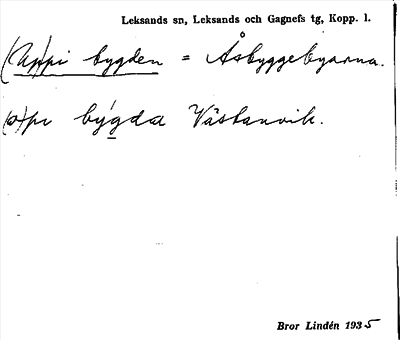 Leksands sn, Leksands och Gagnefs tg, Kopp. l.
(Up)pi bygden = Åsbyggebyarna.
(o)pi býgda Västanvik.
Bror Lindén 1935